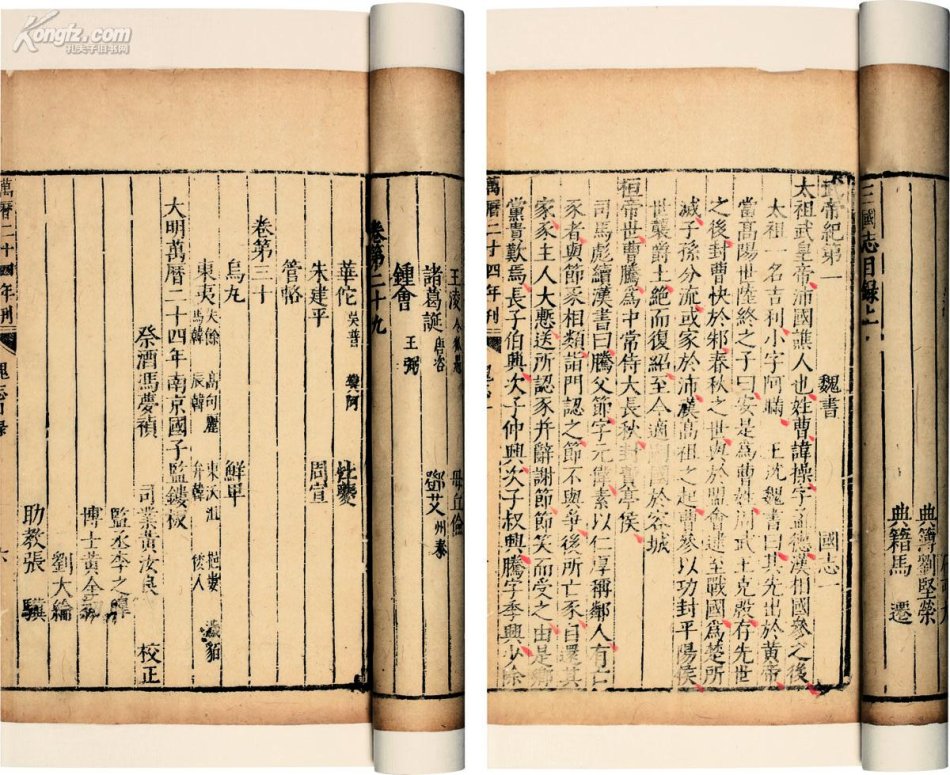 Kongfz.com
孔夫子旧书网
王淩
毋丘儉
諸葛誕 唐咨
鄧艾 州泰
鍾會 王弼
卷第二十九
華佗 吳普 樊阿
杜夔
朱建平
周宣
管輅
卷第三十
烏丸
鮮卑
東夷 夫餘 高句麗 東沃沮 挹婁 濊貊 馬韓 辰韓 弁韓 倭人
大明萬曆二十四年南京國子監鏤板
祭酒馮夢禎
司業黃汝良 校正
監丞李之皥
博士黃全
劉大綸
助教張 騏
萬曆二十四年刊
魏志目錄
六
三國志目錄上
典簿劉堅榮
典籍馬 遷
武帝紀第一 魏書 國志一
太祖武皇帝沛國譙人也姓曹諱操字孟德漢相國參之後
太祖一名吉利小字阿瞞 王沈魏書曰其先出於黃帝
當高陽世陸終之子曰安是爲曹姓周武王克殷存先世
之後封曹俠於邾春秋之世與於盟會逮至戰國爲楚所
滅子孫分流或家於沛漢高祖之起曹參以功封平陽侯
世襲爵土絕而復紹至今適嗣國於容城
桓帝世曹騰爲中常侍大長秋封費亭侯
司馬彪續漢書曰騰父節字元偉素以仁厚稱鄰人有亡
豕者與節豕相類詣門認之節不與爭後所亡豕自還其
家豕主人大慙送所認豕并辭謝節節笑而受之由是鄉
黨貴歎焉長子伯興次子仲興次子叔興騰字季興少除
萬曆二十四年刊
魏志一